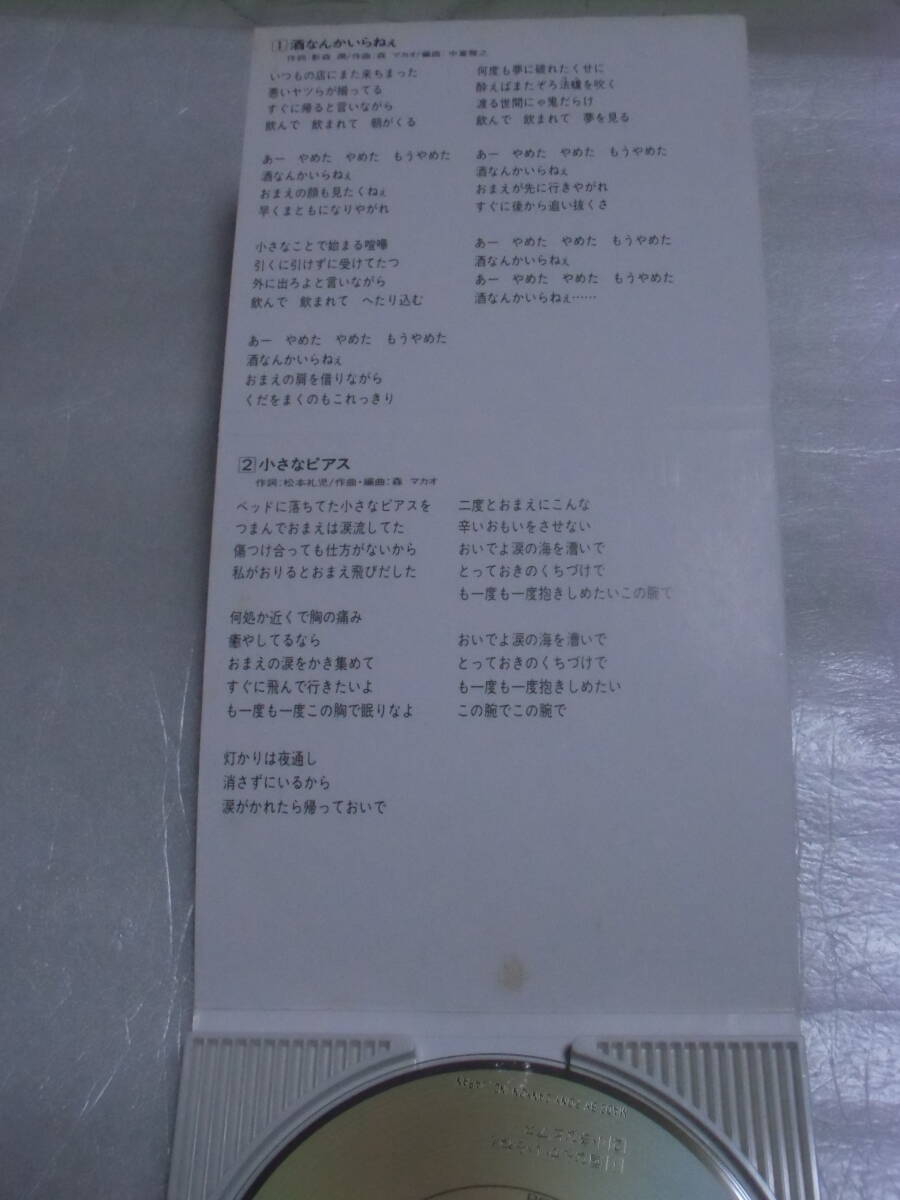 1 酒なんかいらねぇ
作詞:影森 潤/作曲:森 マカオ/編曲:中富雅之
いつもの店にまた来ちまった
悪いヤツらが揃ってる
すぐに帰ると言いながら
飲んで 飲まれて 朝がくる
あー やめた やめた もうやめた
酒なんかいらねぇ
おまえの顔も見たくねぇ
早くまともになりやがれ
小さなことで始まる喧嘩
引くに引けずに受けてたつ
外に出ろよと言いながら
飲んで 飲まれて へたり込む
あー やめた やめた もうやめた
酒なんかいらねぇ
おまえの肩を借りながら
くだをまくのもこれっきり
何度も夢に破れたくせに
酔えばまたぞろ法螺を吹く
渡る世間にゃ鬼だらけ
飲んで 飲まれて 夢を見る
あー やめた やめた もうやめた
酒なんかいらねぇ
おまえが先に行きやがれ
すぐに後から追い抜くさ
あー やめた やめた もうやめた
酒なんかいらねぇ
あー やめた やめた もうやめた
酒なんかいらねぇ……
2 小さなピアス
作詞:松本礼児/作曲・編曲:森 マカオ
ベッドに落ちてた小さなピアスを
つまんでおまえは涙流してた
傷つけ合っても仕方がないから
私がおりるとおまえ飛びだした
何処か近くで胸の痛み
癒やしてるなら
おまえの涙をかき集めて
すぐに飛んで行きたいよ
も一度も一度この胸で眠りなよ
灯かりは夜通し
消さずにいるから
涙がかれたら帰っておいで
二度とおまえにこんな
辛いおもいをさせない
おいでよ涙の海を漕いで
とっておきのくちづけで
も一度も一度抱きしめたいこの腕で
おいでよ涙の海を漕いで
とっておきのくちづけで
も一度も一度抱きしめたい
この腕でこの腕で
2 小さなピアス
1 酒なんかいらねぇ